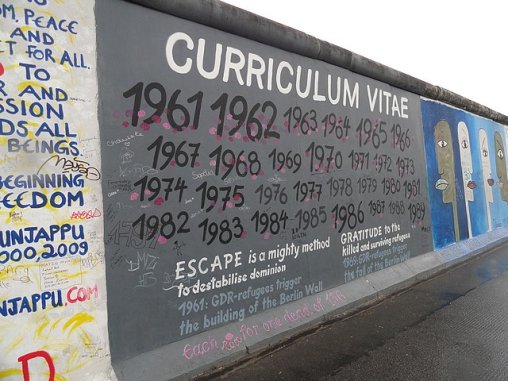 OM, PEACE
AND
ET FOR ALL.
TO
AND
SSION
ALL
BEINGS.
BEGINNING
FREEDOM
UNJAPPU
000,2009
UNJAPPU.COM
CURRICULUM VITAE
1961 1962 1963 1964 1965 1966
1967 1968 1969 1970 1971 1972 1973
1974 1975 1976 1977 1978 1979 1980 1981
1982 1983 1984 1985 1986 1987 1988 1989
ESCAPE is a mighty method
to destabilise dominion
1961: GDR-refugees trigger
the building of the Berlin Wall
GRATITUDE to the
killed and surviving refugees
1989: GDR-refugees trigger
the fall of the Berlin Wall
Each for one dead of